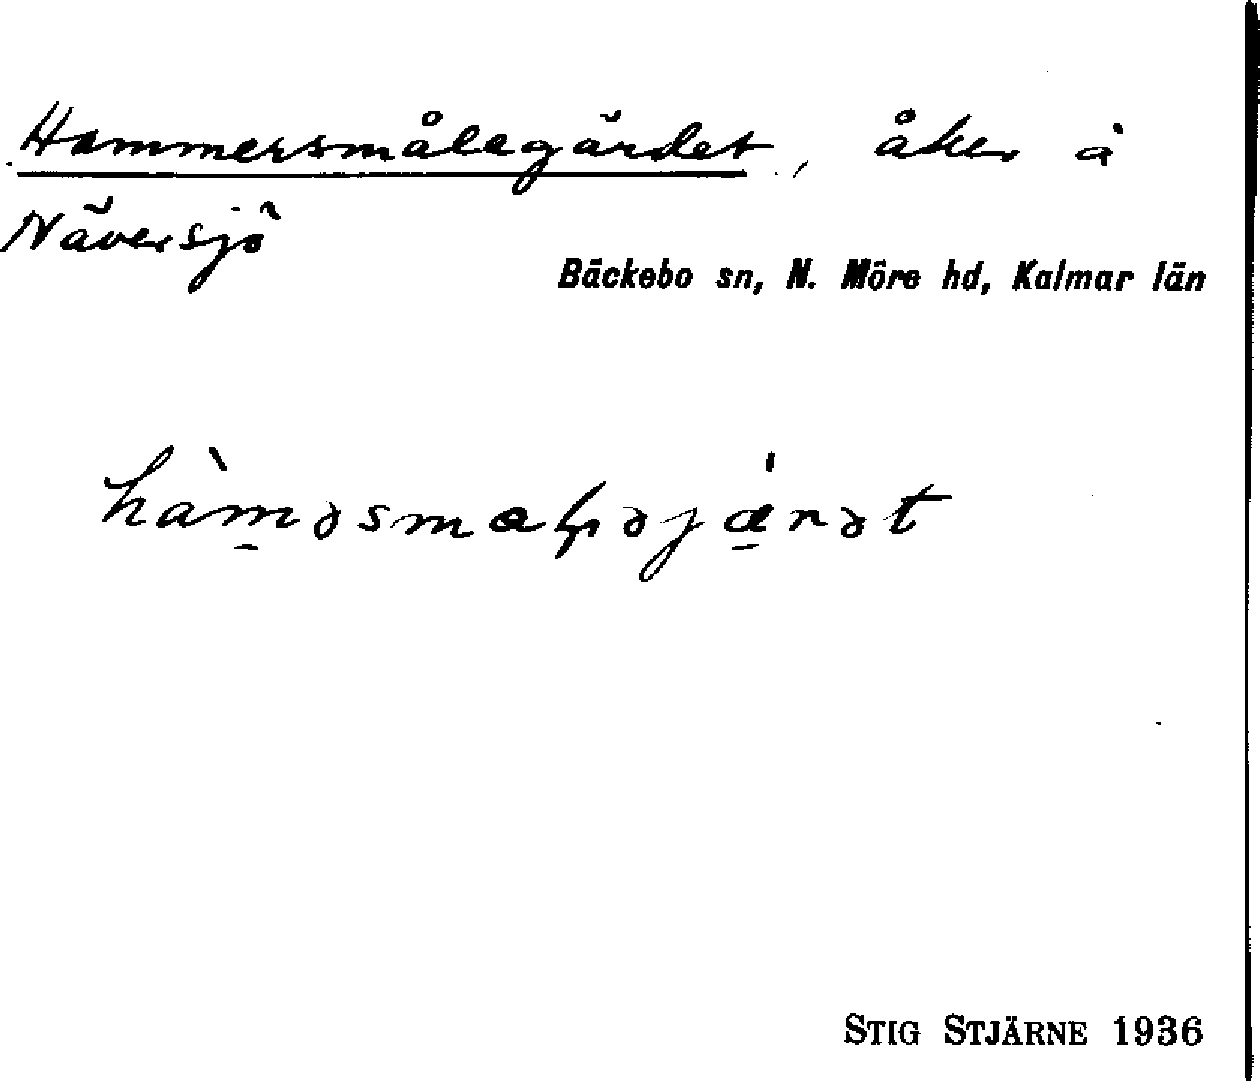 Hammersmålegärdet, åker å
Näversjö
Bäckebo sn, N. Möre hd, Kalmar län
STIG STJÄRNE 1936